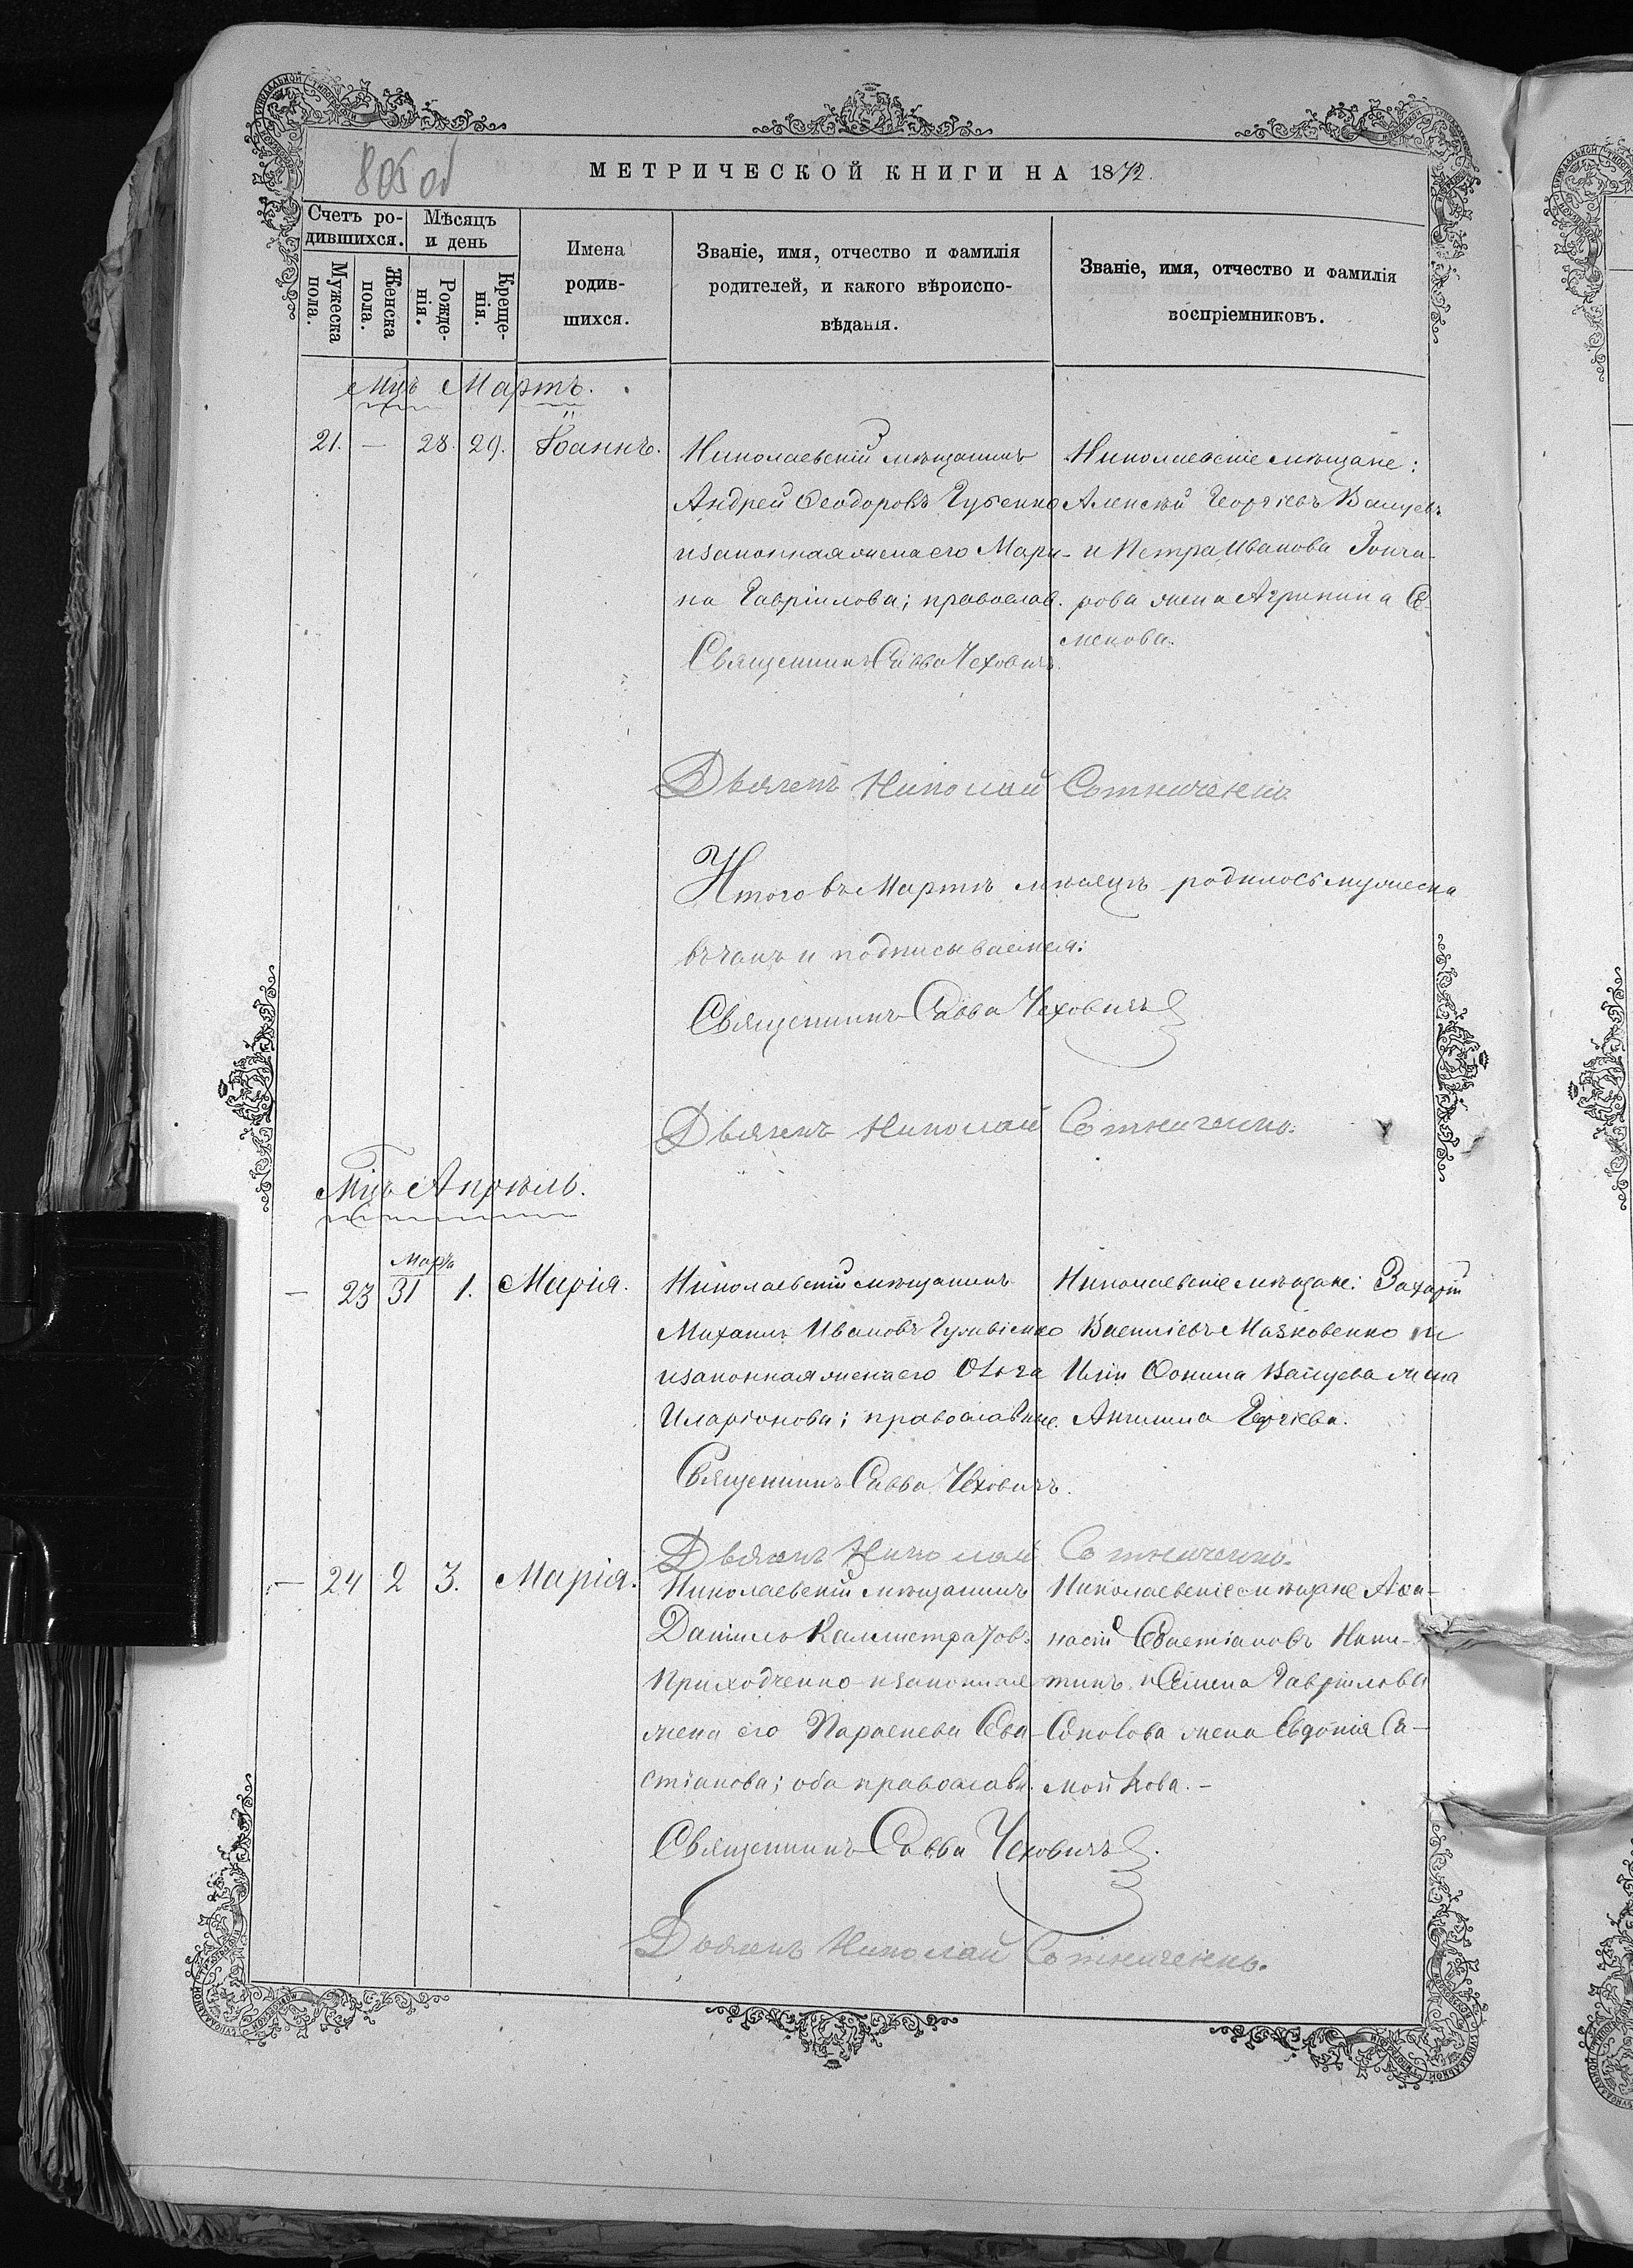 805 об
МЕТРИЧЕСКОЙ КНИГИ НА 1872.
Счетъ ро-
дившихся.
Мужеска
пола.
Женска
пола.
Мѣсяцъ
и день
Рожде-
нія.
Креще-
нія.
Имена
родив-
шихся.
Званіе, имя, отчество и фамилія
родителей, и какого вѣроиспо-
вѣданія.
Званіе, имя, отчество и фамилія
воспріемниковъ.
Мцъ Мартъ.
21. — 28. 29. Іоаннъ.
Николаевскій мѣщанинъ
Андрей Ѳеодоровъ Губенко
и законная жена его Мари-
на Гавріилова; православ.
Священникъ Савва Чеховичъ.
Николаевскіе мѣщане:
Алексѣй Георгіевъ Вайцевъ
и Петра Иванова Гонча-
рова жена Агрипина Се-
менова.
Дьячекъ Николай Сотниченко.
Итого въ Мартѣ мѣсяцѣ родилось мужеска
и подписываемся:
Священникъ Савва Чеховичъ
Дьячекъ Николай Сотниченко.
Мцъ Апрѣль.
Марта
— 23 31 1. Марія.
Николаевскій мѣщанинъ
Михаилъ Ивановъ
и законная жена его Ольга
Иларіонова; православные.
Священникъ Савва Чеховичъ.
Николаевскіе мѣщане: Захарій
Василіевъ Маяковенко и
Иліи Ѳомина Вайцева жена
Акилина Георгіева.
Дьячекъ Николай Сотниченко.
— 24 2 3. Марія.
Николаевскій мѣщанинъ
Даніилъ Каллистратовъ
Приходченко и законная
жена его Параскева Сева-
стіанова; оба православн.
Священникъ Савва Чеховичъ.
Николаевскіе мѣщане Аѳа-
насій Севастіановъ Ники-
тинъ и Симена Гавріилова
жена Евдокія Са-
мойлова. —
Дьячекъ Николай Сотниченко.